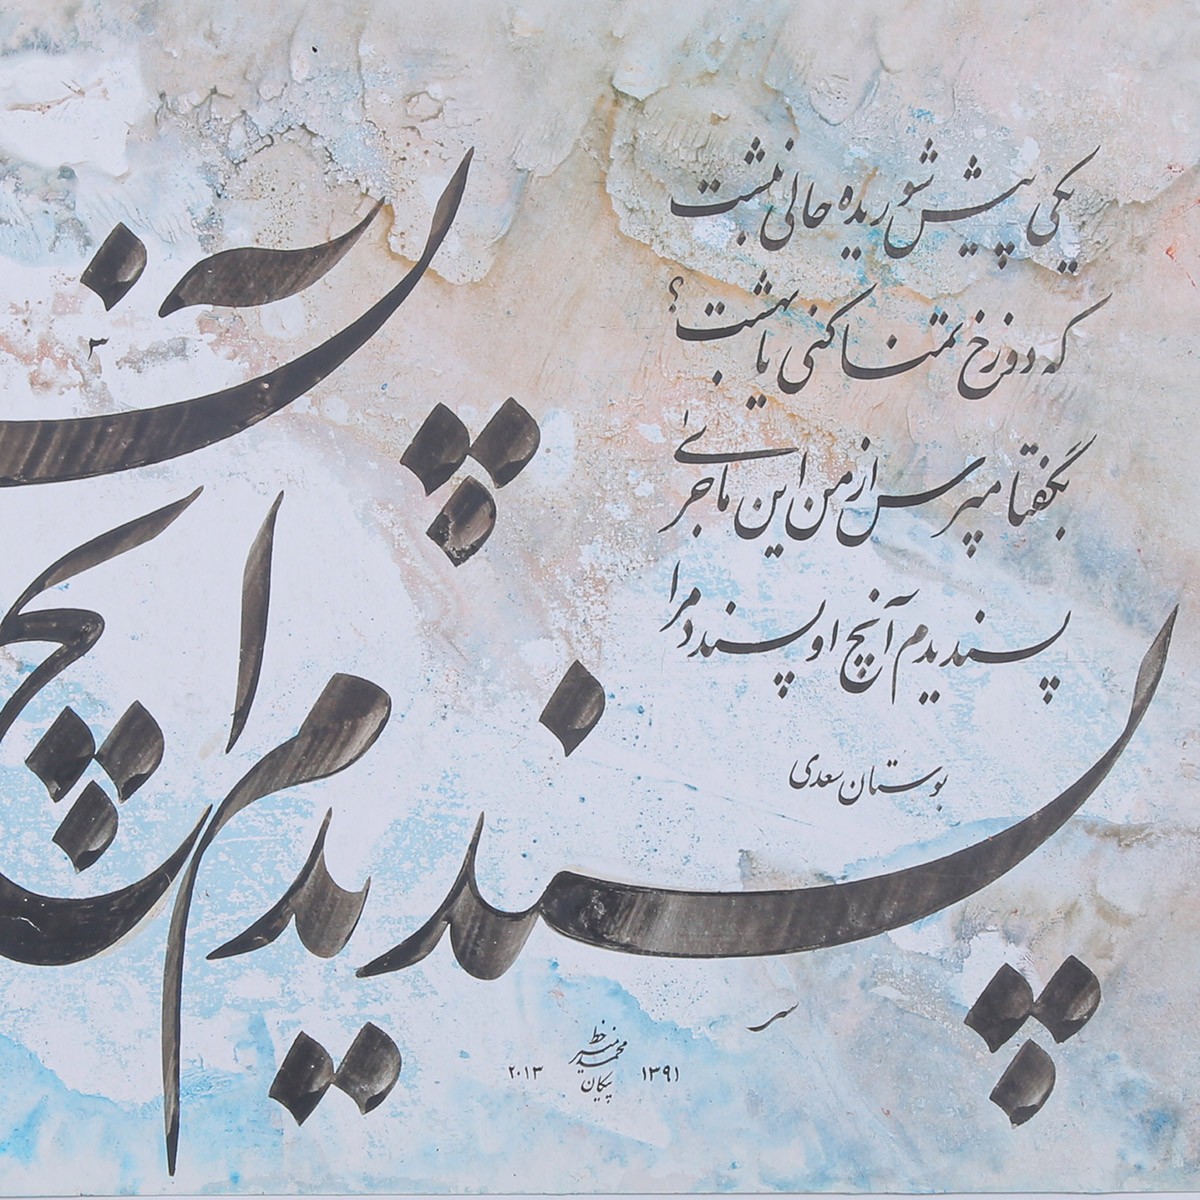 یکی پیش شوریده حالی نبشت
که دوزخ تمنا کنی یا بهشت؟
بگفتا مپرس از من این ماجرای
پسندیدم آنچ او پسندد مرا
بوستان سعدی
پسندیدم آنچ
پسن
خط
محمد منیر
پیکان
۱۳۹۱
۲۰۱۳